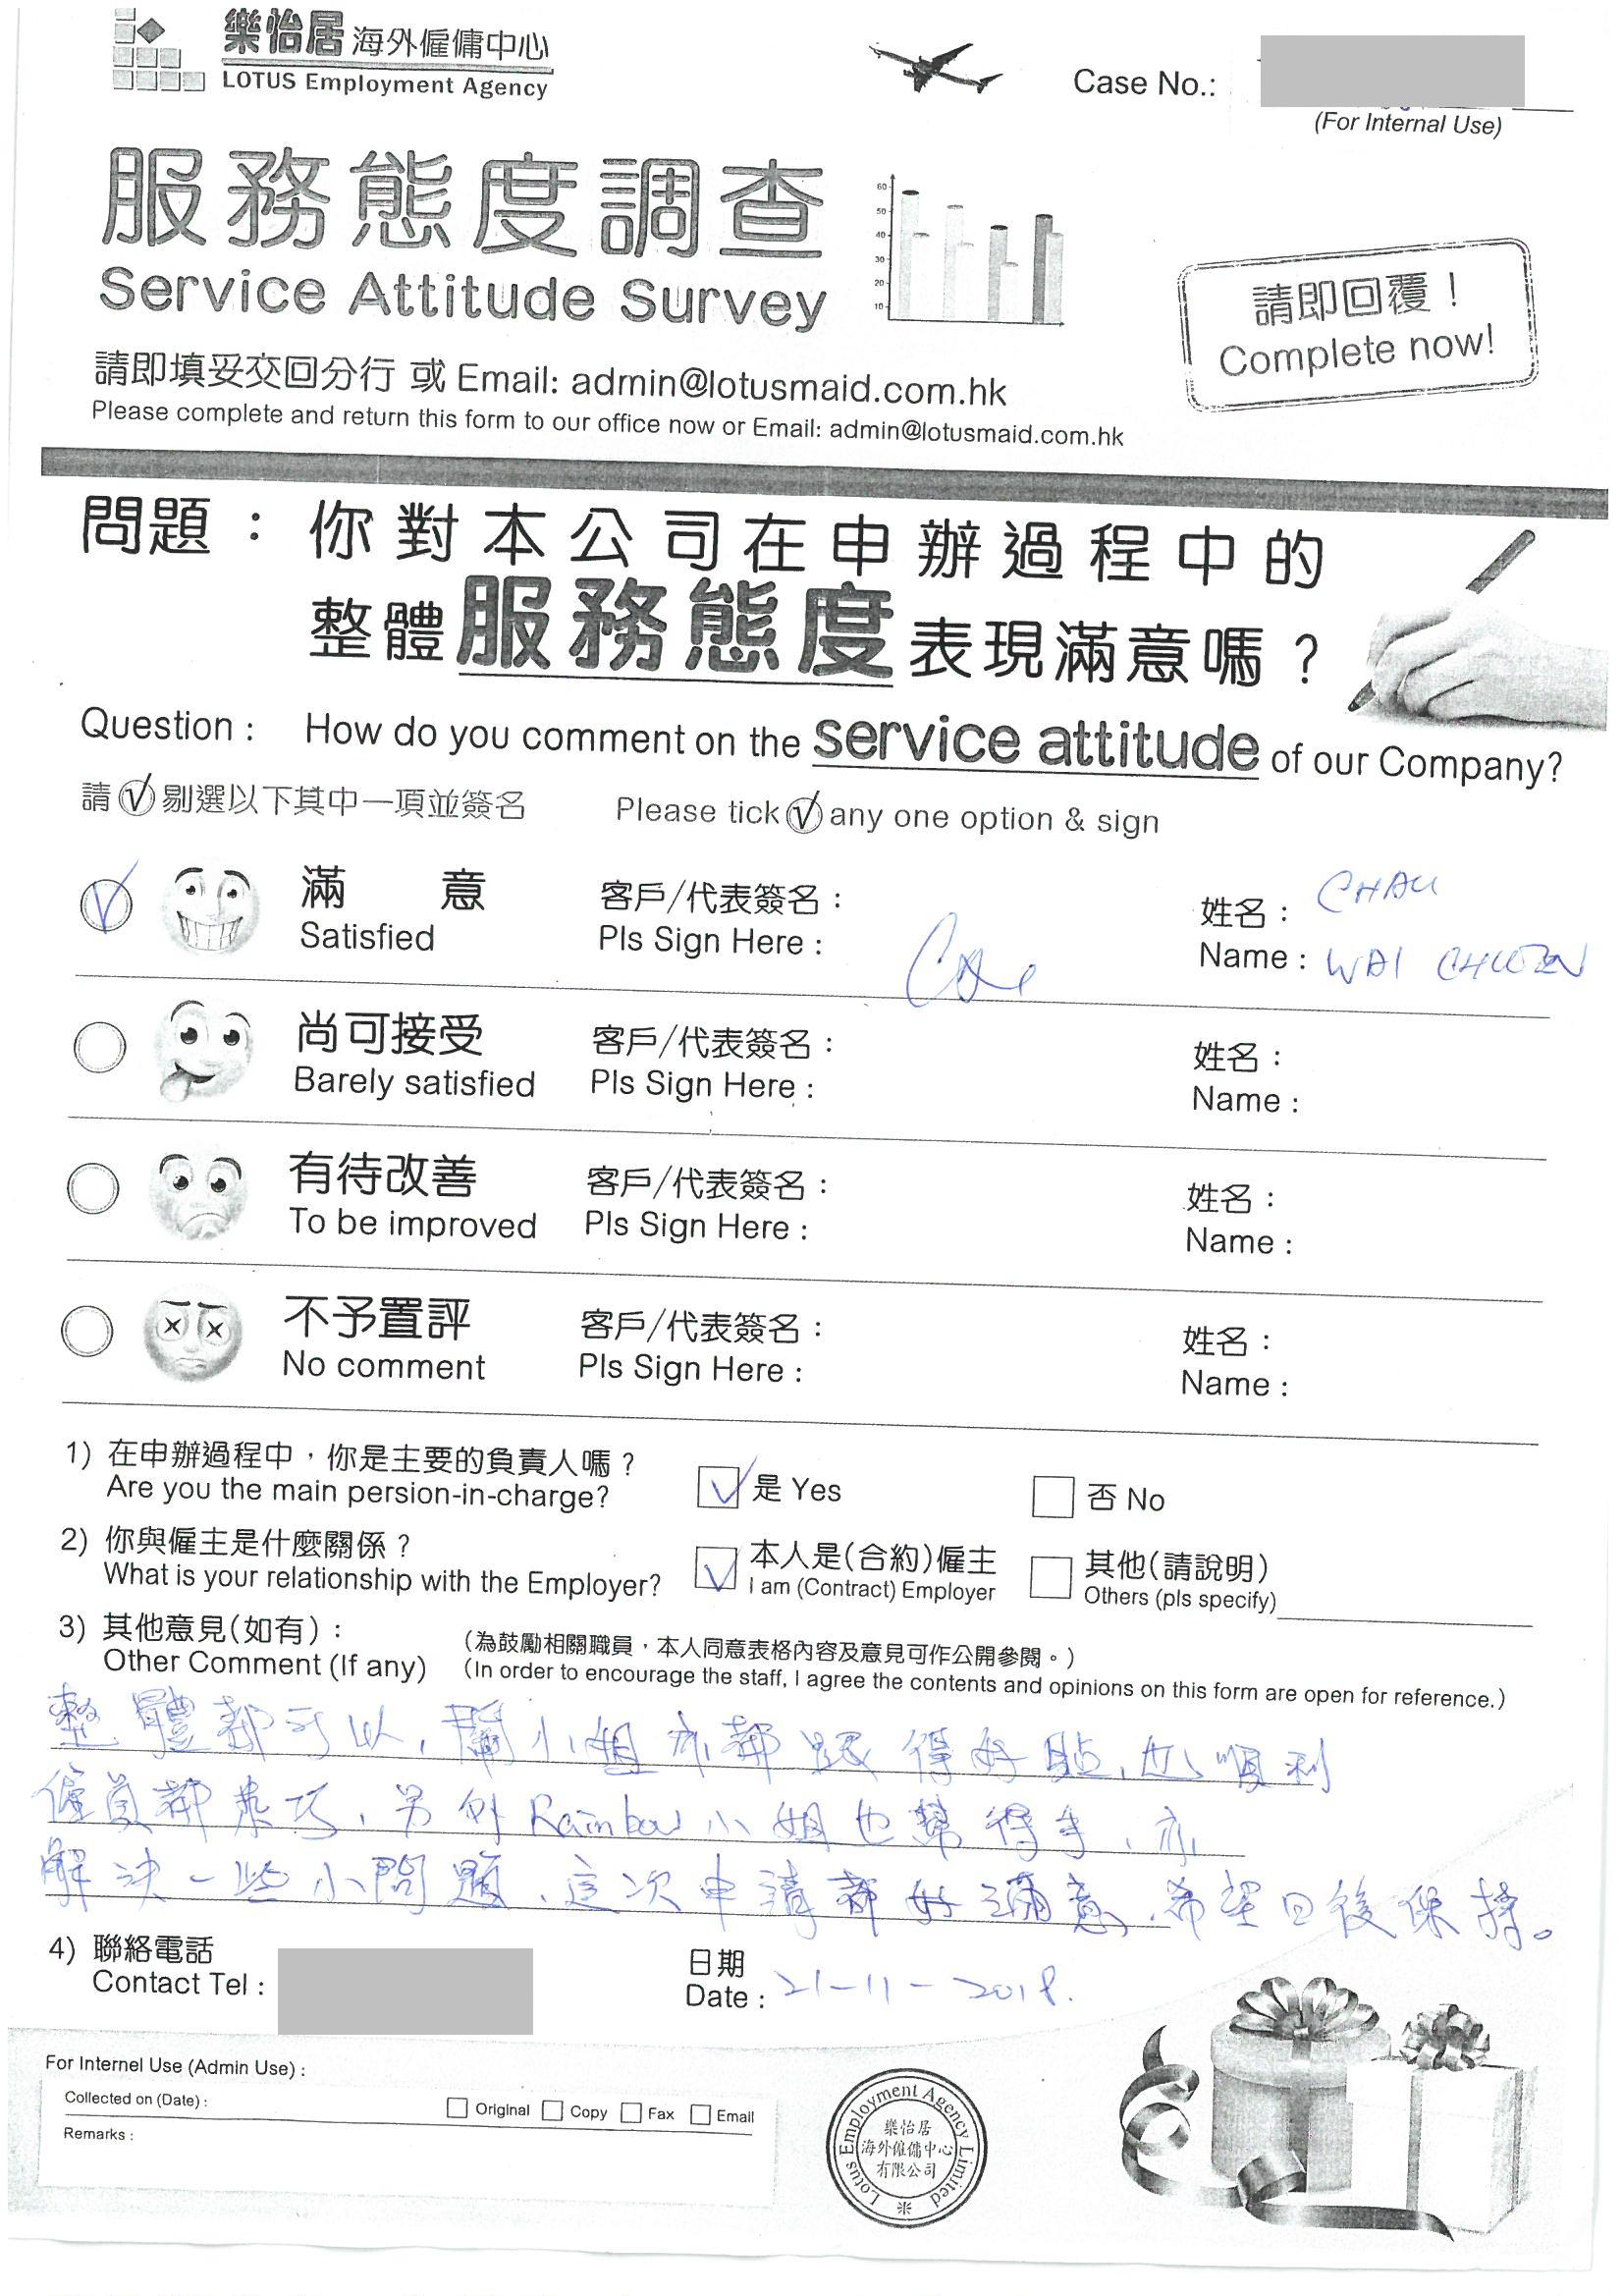 樂怡居海外僱傭中心
LOTUS Employment Agency
Case No.:
(For Internal Use)
服務態度調查
Service Attitude Survey
60
50
40
30
20
10
請即回覆！
Complete now!
請即填妥交回分行 或 Email: admin@lotusmaid.com.hk
Please complete and return this form to our office now or Email: admin@lotusmaid.com.hk
問題： 你對本公司在申辦過程中的
整體服務態度表現滿意嗎？
Question : How do you comment on the service attitude of our Company?
請√剔選以下其中一項並簽名 Please tick √ any one option & sign
滿 意 客戶/代表簽名： 姓名： CHAU
Satisfied Pls Sign Here : Name : WAI
尚可接受 客戶/代表簽名： 姓名：
Barely satisfied Pls Sign Here : Name :
有待改善 客戶/代表簽名： 姓名：
To be improved Pls Sign Here : Name :
不予置評 客戶/代表簽名： 姓名：
No comment Pls Sign Here : Name :
1) 在申辦過程中，你是主要的負責人嗎？ 是 Yes 否 No
Are you the main persion-in-charge?
2) 你與僱主是什麼關係？ 本人是(合約)僱主 其他(請說明)
What is your relationship with the Employer? I am (Contract) Employer Others (pls specify)
3) 其他意見(如有)： (為鼓勵相關職員，本人同意表格內容及意見可作公開參閱。)
Other Comment (If any) (In order to encourage the staff, I agree the contents and opinions on this form are open for reference.)
整體都可以, 小姐亦都跟得好貼, 順利
僱員都乖巧, 另外Rainbow小姐也幫得手, 亦
解決一些小問題, 這次申請都好滿意, 希望日後保持。
4) 聯絡電話 日期
Contact Tel : Date : 21-11-2018.
For Internel Use (Admin Use) :
Collected on (Date) : Original Copy Fax Email
Remarks :
Lotus Employment Agency Limited
樂怡居
海外僱傭中心
有限公司